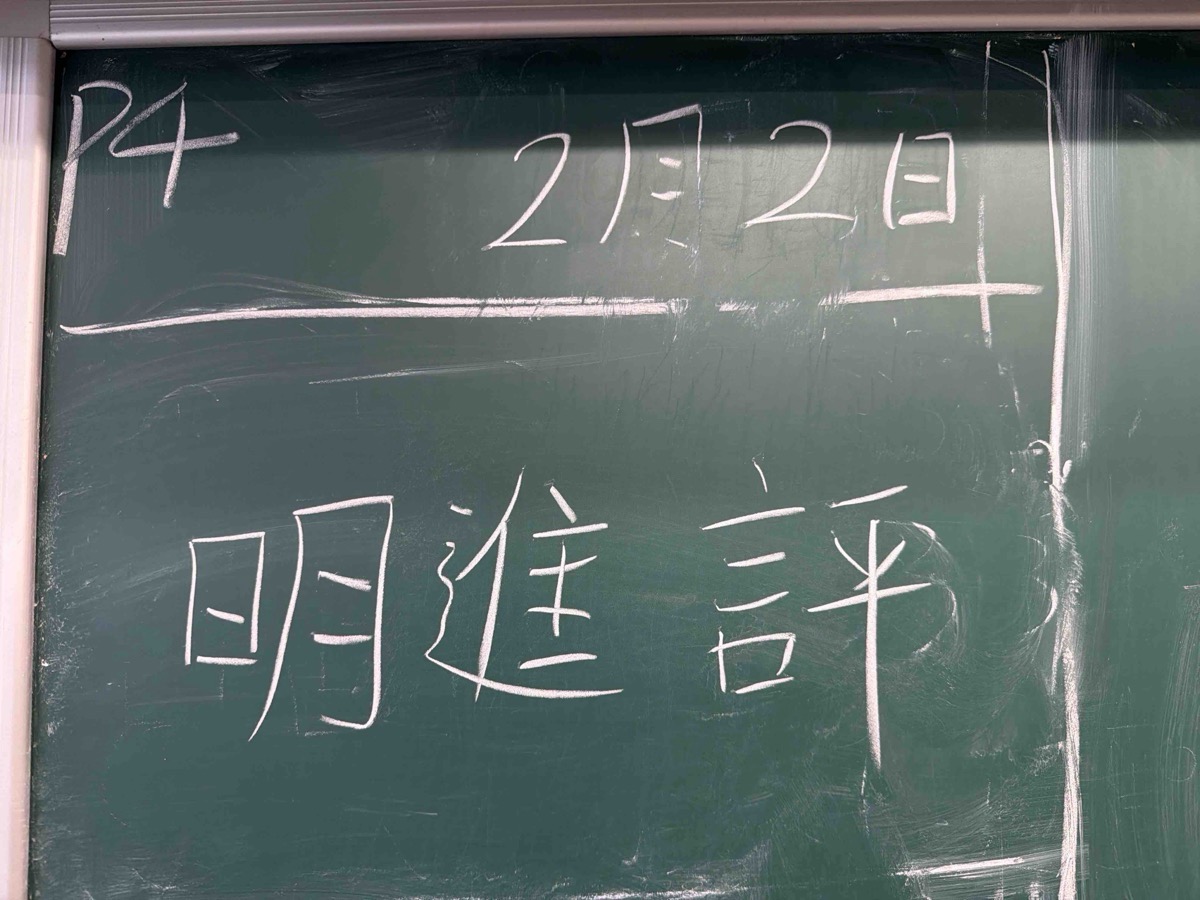 P4 2月2日
明進評